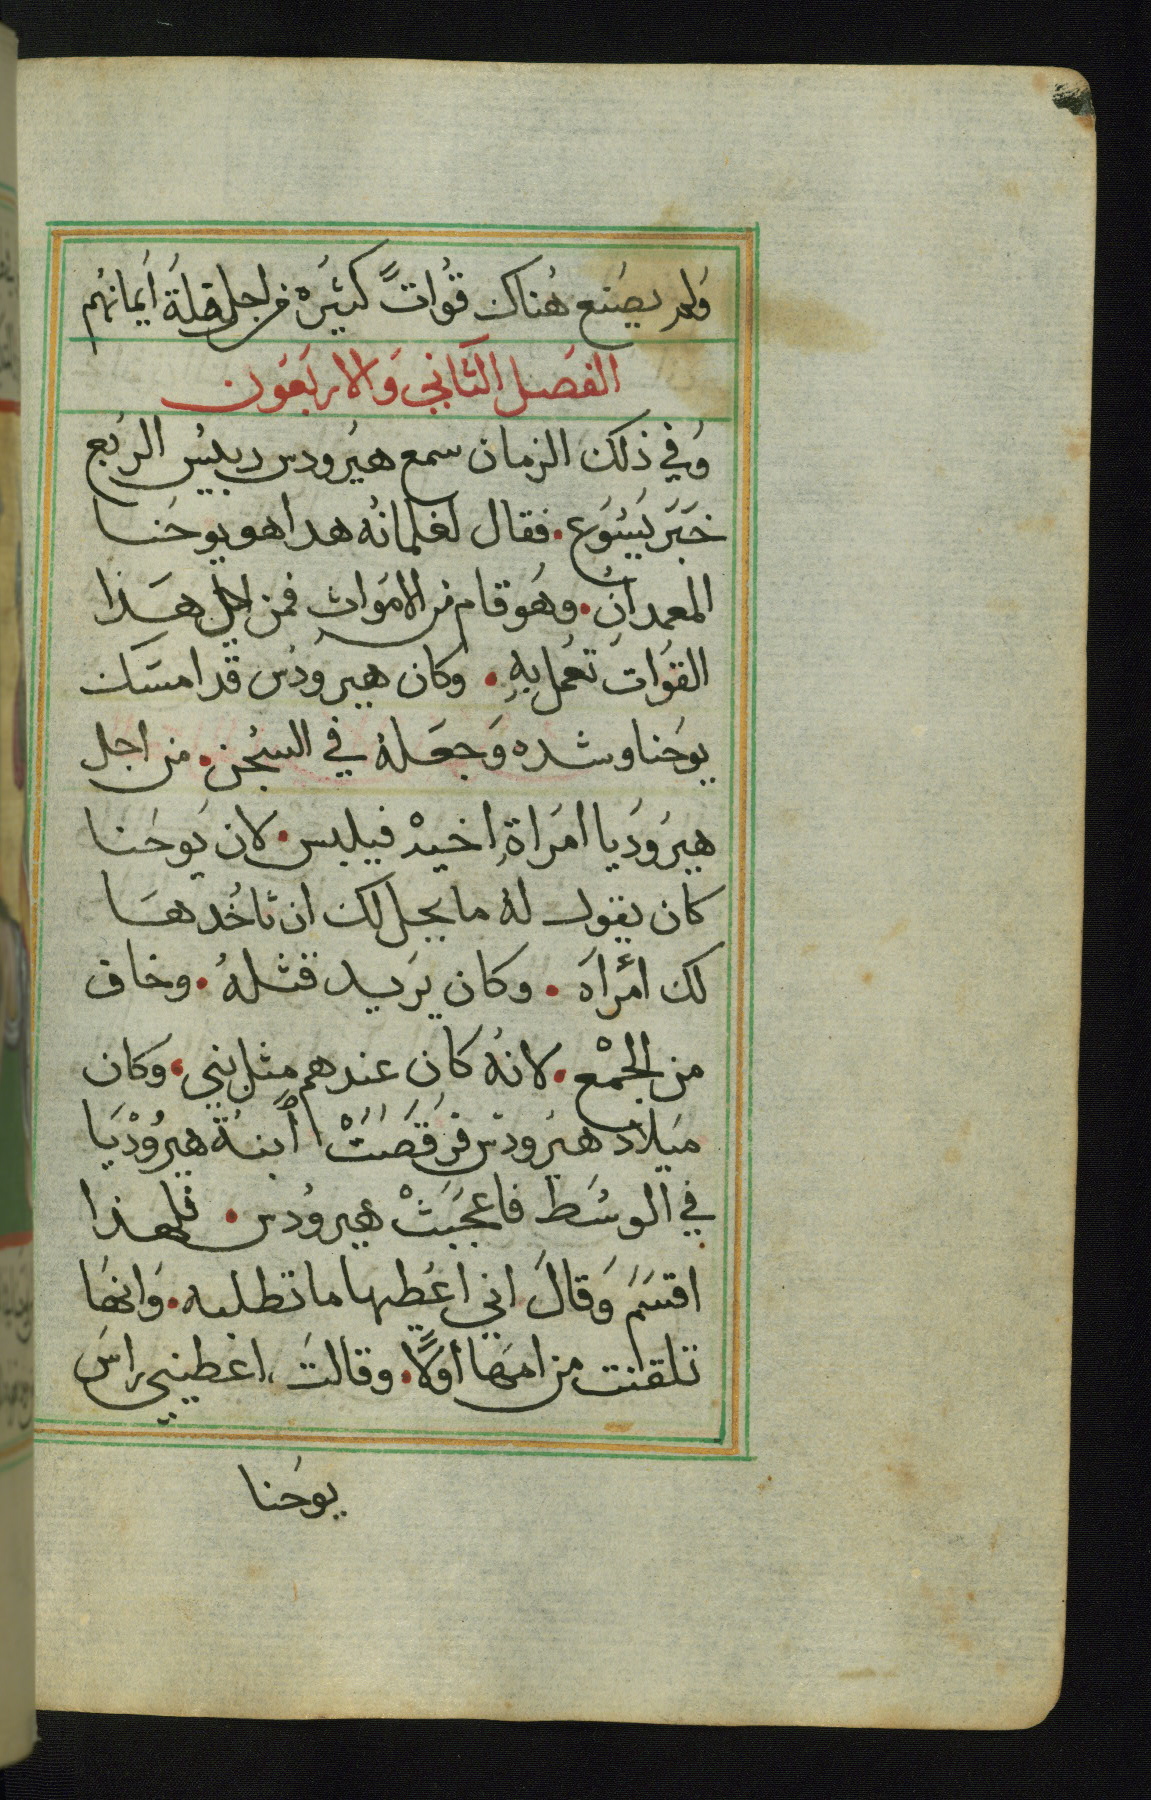 وَلم يصَنع هُناك قوُاتً كثيَره من اجل قلةَ ايَمانهُم
الفصَل الثَاني وَالاربَعَون
وَفي ذلك الزمان سمع هيَرودس رييسُ الربَع
خَبَر يَسُوَع. فقال لغلمانُه هدا هو يوحَنا
المعمدانُ. وهَو قام من الامَواتِ فمن اجل هَذا
القوَات تعمل بِهِ. وكان هيَروَدُس قد امسَك
يوحَنا وشده وَجعَلهُ في السجُن. من اجل
هيَروَديا امَراةِ اخيهْ فيلبس. لان يَوحَنا
كان يقول لهُ ما يحل لك ان تاخُدهَا
لك امُراَه. وكان يرَيد قتْلهُ. وخاف
من الجمْع. لانهُ كان عندهم مثل نبي. وَكان
ميَلاَد هيرَودَس فرَقَصَتْ اُبَنةُ هيرُوُدْيَا
في الوسَط فاعجَبَتْ هيروُدس. فلهذا
اقسَمَ وَقالَ اني اعَطيها ما تطلبه. وَانهَا
تلقنت من امَها اوَلًا. وقالتَ اعطيني راسَ
يوحَنا